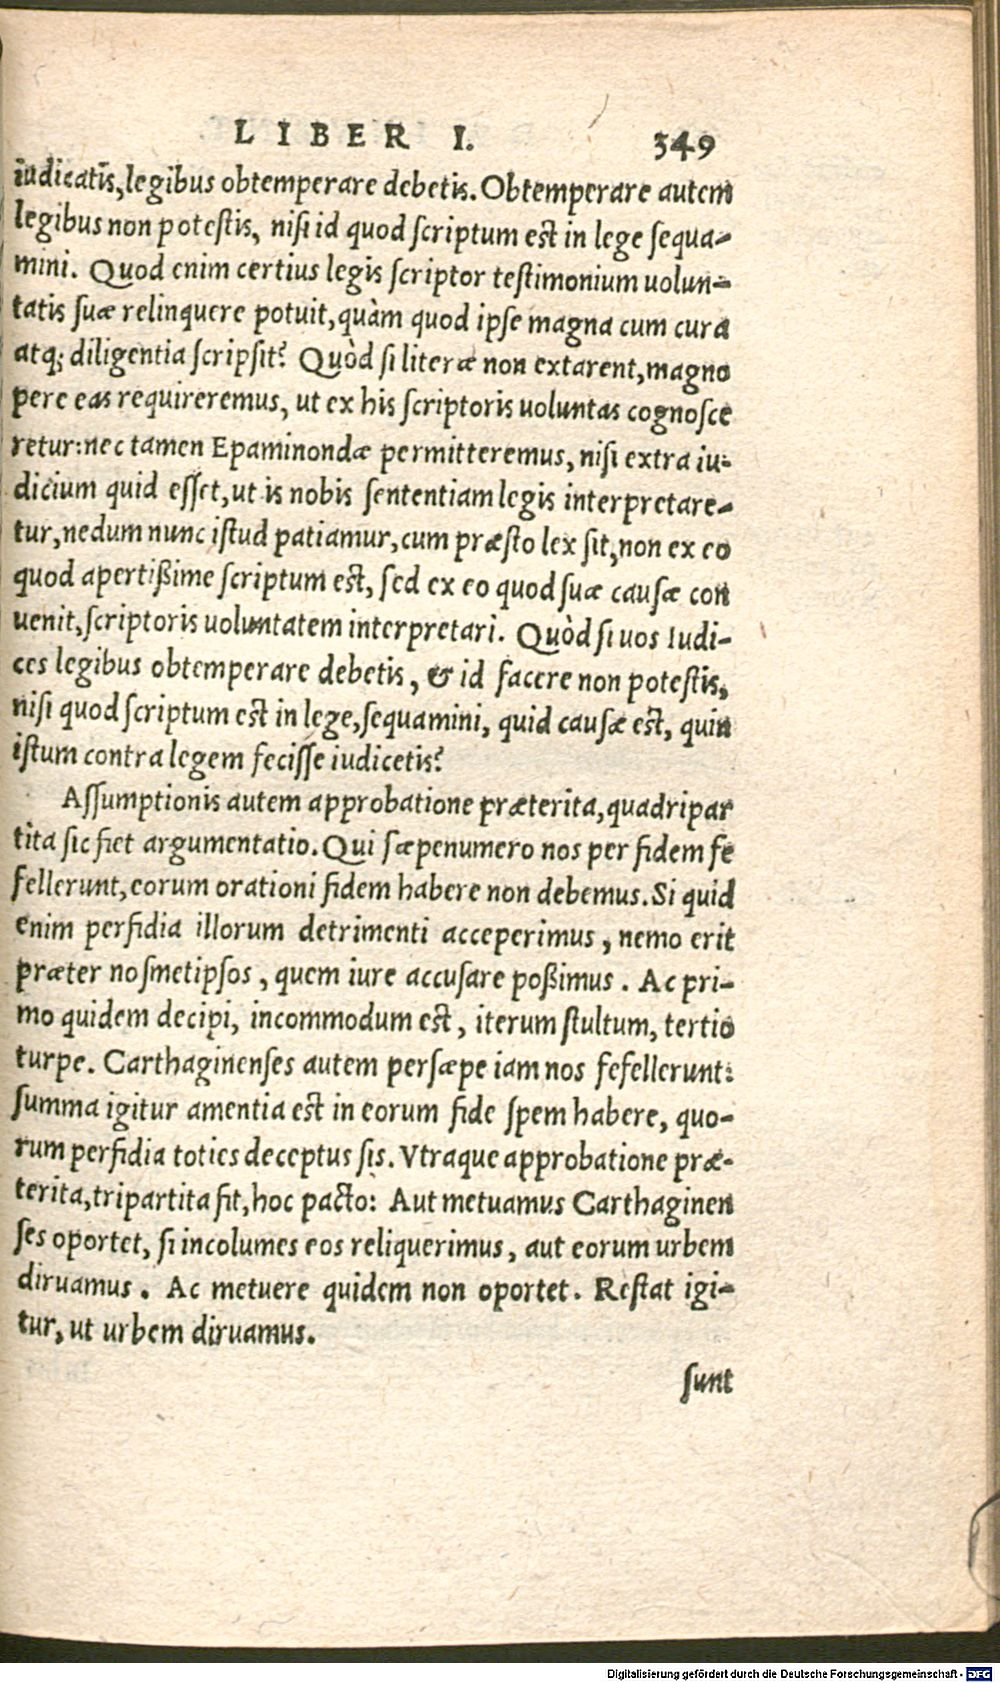 LIBER I. 349
iudicatis, legibus obtemperare debetis. Obtemperare autem
legibus non potestis, nisi id quod scriptum est in lege sequa-
mini. Quod enim certius legis scriptor testimonium uolun-
tatis suæ relinquere potuit, quàm quod ipse magna cum cura
atq; diligentia scripsit? Quòd si literæ non extarent, magno
pere eas requireremus, ut ex his scriptoris uoluntas cognosce
retur: nec tamen Epaminondæ permitteremus, nisi extra iu-
dicium quid esset, ut is nobis sententiam legis interpretare-
tur, nedum nunc istud patiamur, cum præsto lex sit, non ex eo
quod apertißime scriptum est, sed ex eo quod suæ causæ con
uenit, scriptoris uoluntatem interpretari. Quòd si uos Iudi-
ces legibus obtemperare debetis, & id facere non potestis,
nisi quod scriptum est in lege, sequamini, quid causæ est, quin
istum contra legem fecisse iudicetis?
Assumptionis autem approbatione præterita, quadripar
tita sic fiet argumentatio. Qui sæpenumero nos per fidem fe
fellerunt, eorum orationi fidem habere non debemus. Si quid
enim perfidia illorum detrimenti acceperimus, nemo erit
præter nosmetipsos, quem iure accusare poßimus. Ac pri-
mo quidem decipi, incommodum est, iterum stultum, tertio
turpe. Carthaginenses autem persæpe iam nos fefellerunt:
summa igitur amentia est in eorum fide spem habere, quo-
rum perfidia toties deceptus sis. Vtraque approbatione præ-
terita, tripartita fit, hoc pacto: Aut metuamus Carthaginen
ses oportet, si incolumes eos reliquerimus, aut eorum urbem
diruamus. Ac metuere quidem non oportet. Restat igi-
tur, ut urbem diruamus.
sunt
Digitalisierung gefördert durch die Deutsche Forschungsgemeinschaft - DFG